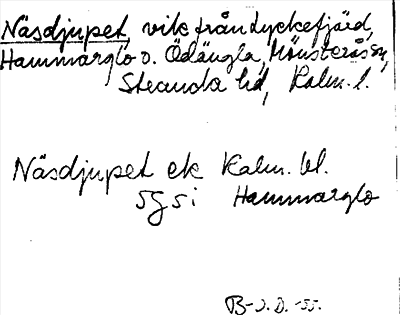 Näsdjupet, vik från Lyckefjärd,
Hammarglo o. Ödängla, Mönsterås sn,
Stranda hd, Kalm. l.
Näsdjupet ek Kalm. bl.
5g 5i Hammarglo
B-J.D. -55.